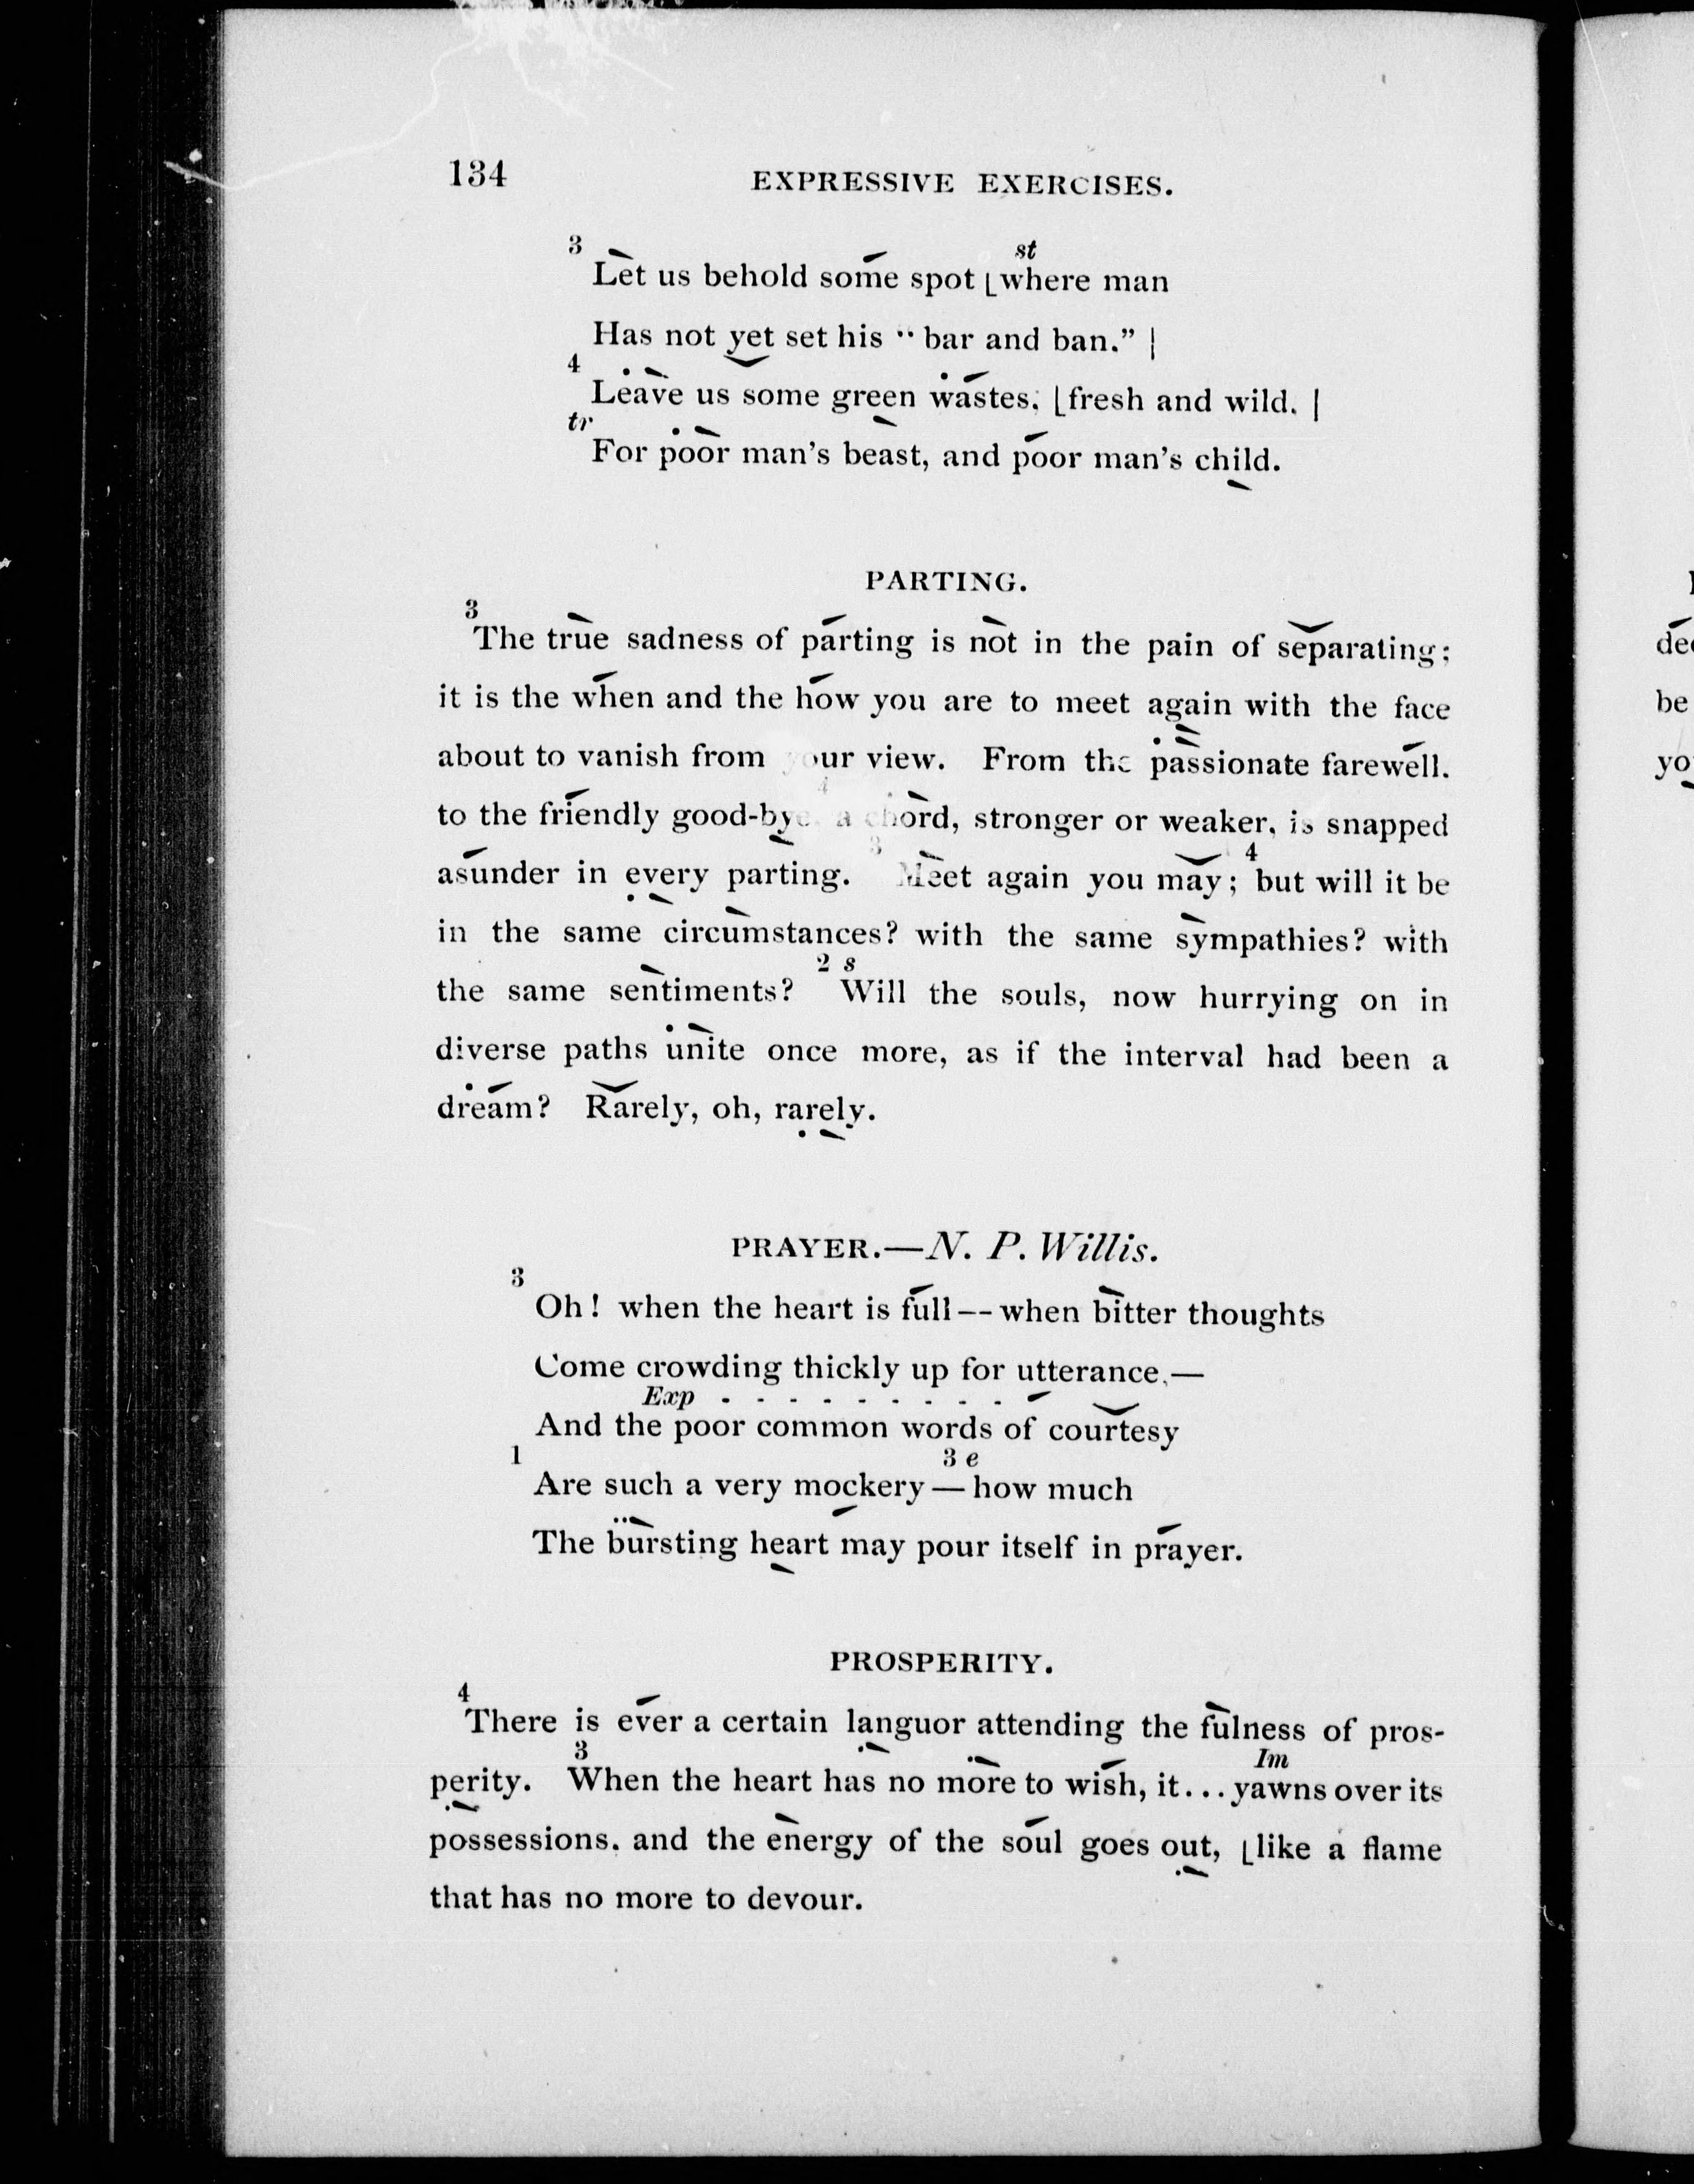 134 EXPRESSIVE EXERCISES.
3 st
Let us behold some spot ⌊where man
Has not yet set his “ bar and ban.” |
4
Leave us some green wastes, ⌊fresh and wild. |
tr
For poor man's beast, and poor man's child.
PARTING.
3
The true sadness of parting is not in the pain of separating;
it is the when and the how you are to meet again with the face
about to vanish from your view. From the passionate farewell.
4
to the friendly good-bye, a chord, stronger or weaker, is snapped
3 4
asunder in every parting. Meet again you may; but will it be
in the same circumstances? with the same sympathies? with
2 s
the same sentiments? Will the souls, now hurrying on in
diverse paths unite once more, as if the interval had been a
dream? Rarely, oh, rarely.
PRAYER.—N. P. Willis.
3
Oh! when the heart is full—when bitter thoughts
Come crowding thickly up for utterance,—
Exp - - - - - - - - -
And the poor common words of courtesy
1 3 e
Are such a very mockery—how much
The bursting heart may pour itself in prayer.
PROSPERITY.
4
There is ever a certain languor attending the fulness of pros-
3 Im
perity. When the heart has no more to wish, it... yawns over its
possessions. and the energy of the soul goes out, ⌊like a flame
that has no more to devour.
be
yo